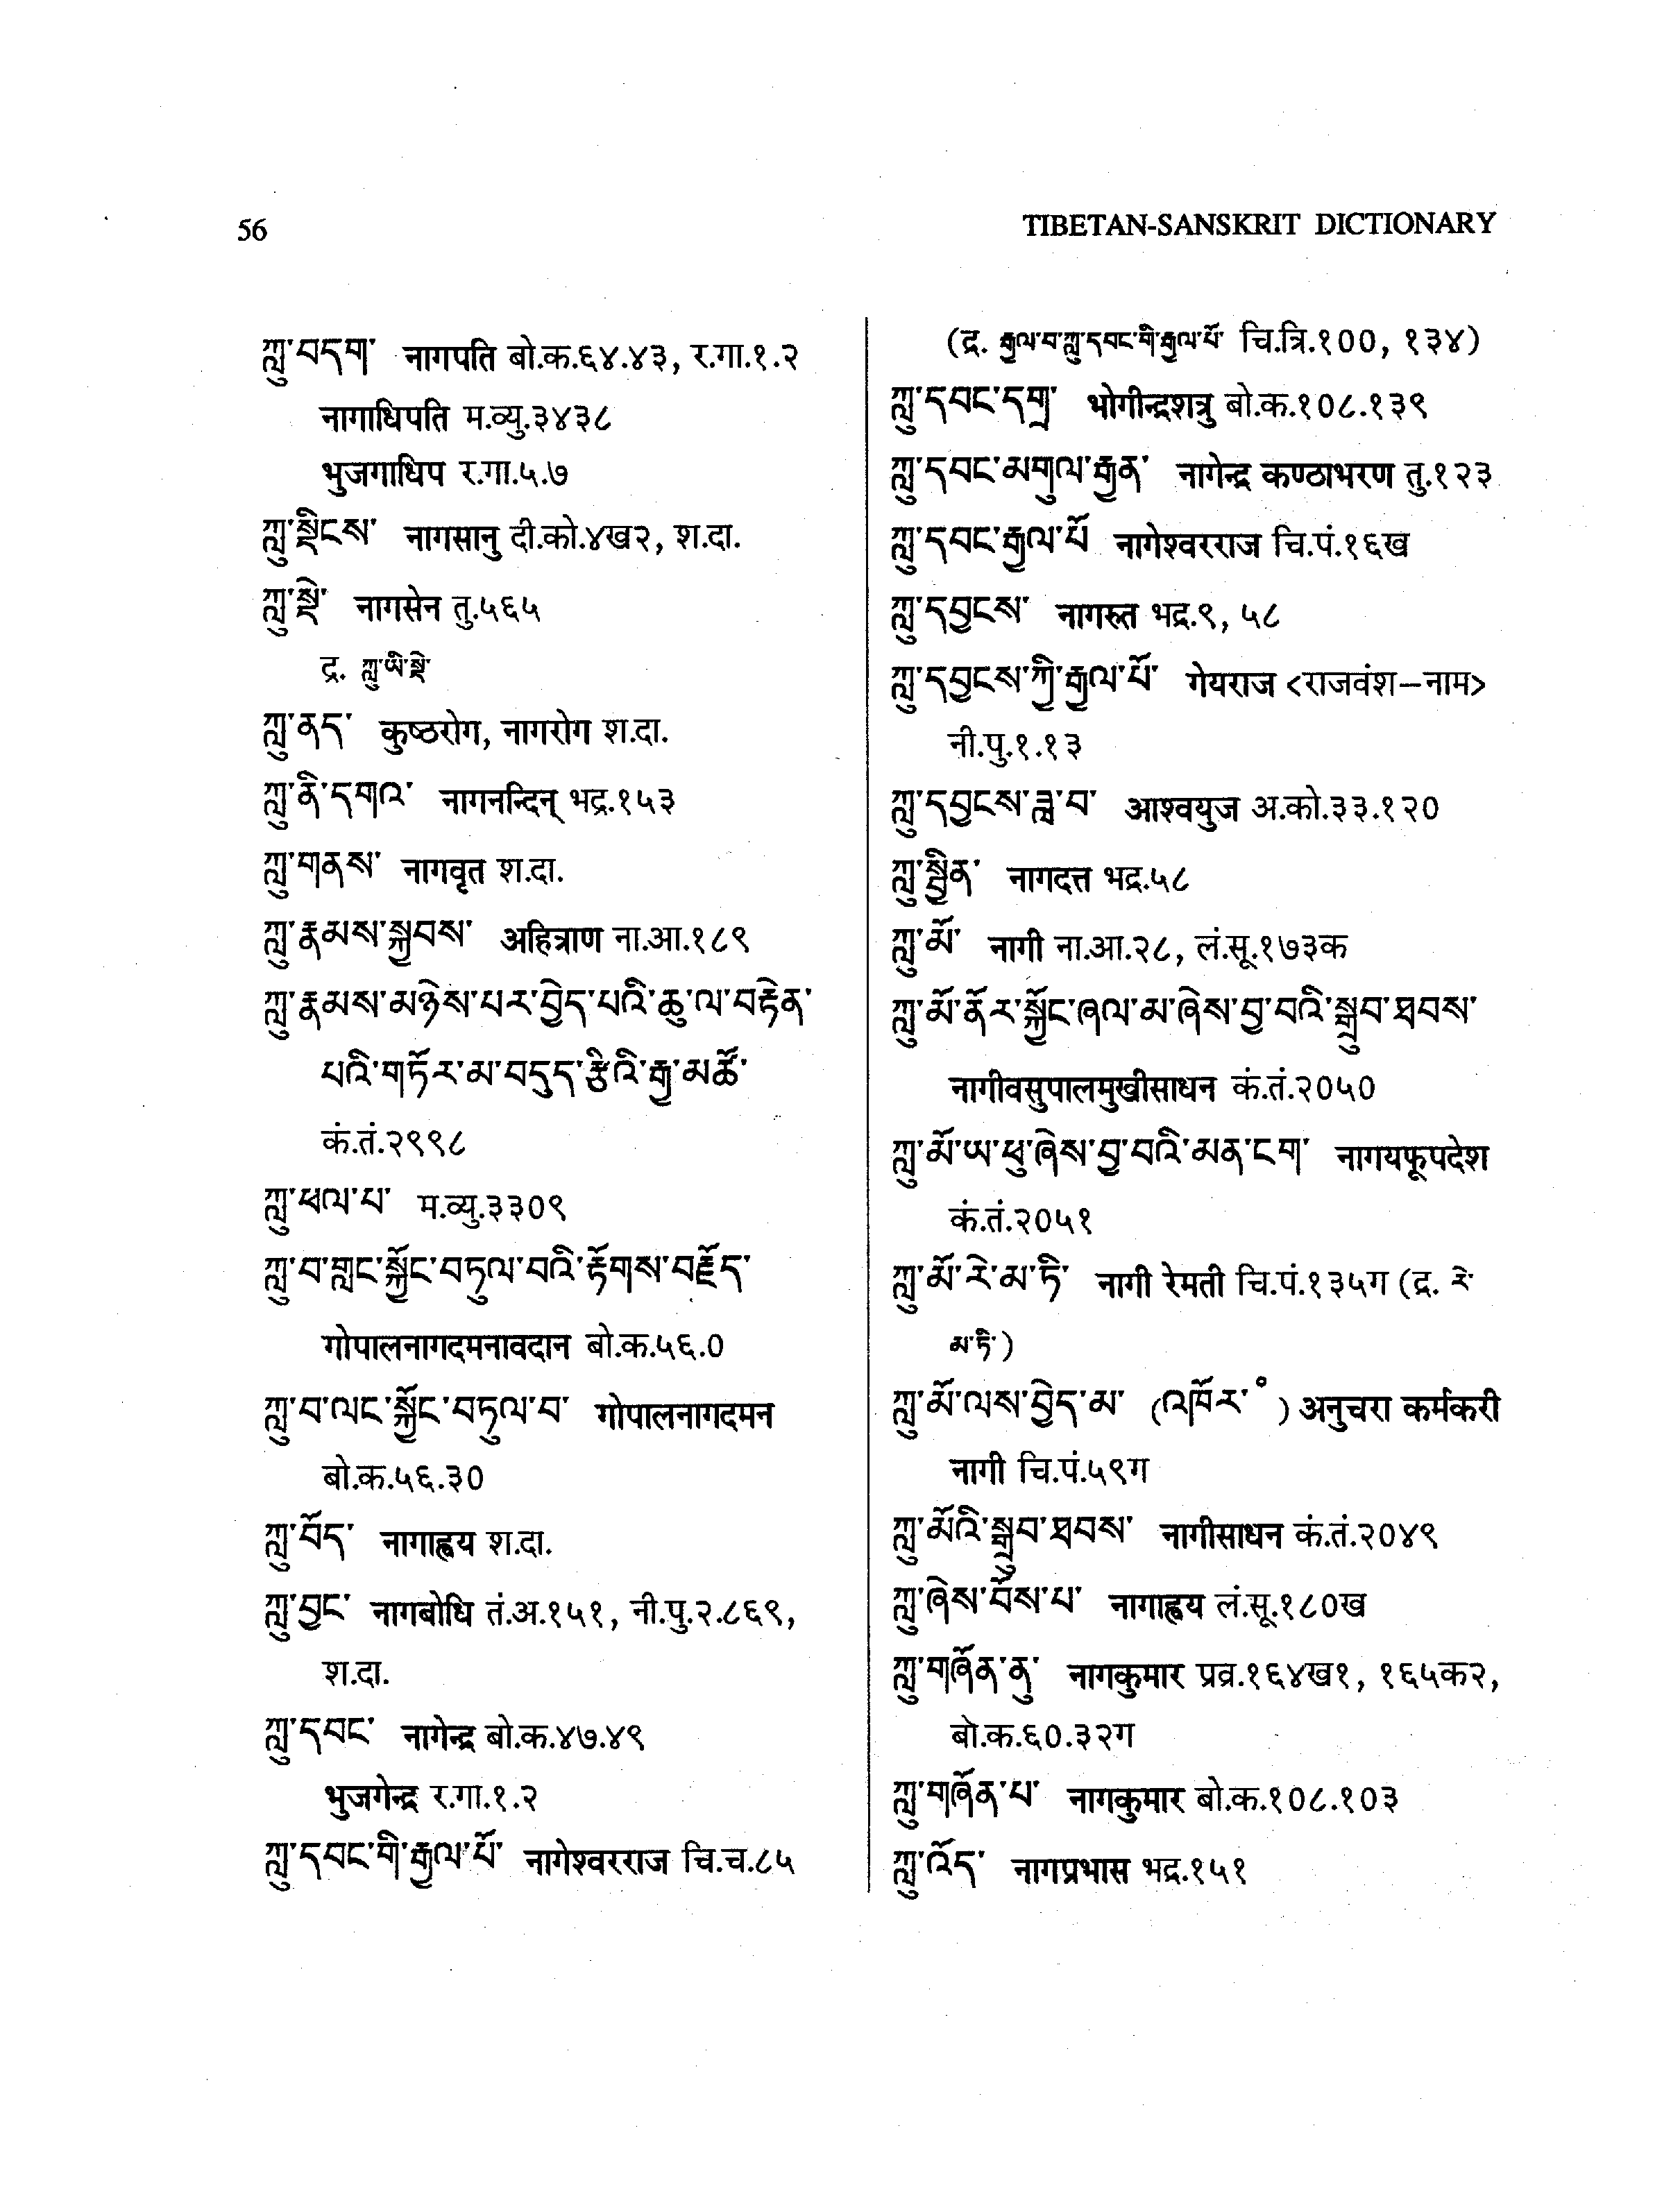 56
TIBETAN-SANSKRIT DICTIONARY
ཀླུ་བདག་ नागपति बो.क.६४.४३, र.गा.१.२
नागाधिपति म.व्यु.३४३८
भुजगाधिप र.गा.५.७
ཀླུ་སྡིངས་ नागसानु दी.को.४ख२, श.दा.
ཀླུ་སྡེ་ नागसेन तु.५६५
द्र. ཀླུ་ཡི་སྡེ་
ཀླུ་ནད་ कुष्ठरोग, नागरोग श.दा.
ཀླུ་ནི་དགའ་ नागनन्दिन् भद्र.१५३
ཀླུ་གནས་ नागवृत श.दा.
ཀླུ་རྣམས་སྐྱབས་ अहित्राण ना.आ.१८९
ཀླུ་རྣམས་མཉེས་པར་བྱེད་པའི་ཆུ་ལ་བརྟེན་
པའི་གཏོར་མ་བདུད་རྩིའི་རྒྱ་མཚོ་
कं.तं.२९९८
ཀླུ་ཕལ་པ་ म.व्यु.३३०९
ཀླུ་བ་གླང་སྐྱོང་བཏུལ་བའི་རྟོགས་བརྗོད་
गोपालनागदमनावदान बो.क.५६.०
ཀླུ་བ་ལང་སྐྱོང་བཏུལ་བ་ गोपालनागदमन
बो.क.५६.३०
ཀླུ་བོད་ नागाह्वय श.दा.
ཀླུ་བྱང་ नागबोधि तं.अ.१५१, नी.पु.२.८६९,
श.दा.
ཀླུ་དབང་ नागेन्द्र बो.क.४७.४९
भुजगेन्द्र र.गा.१.२
ཀླུ་དབང་གི་རྒྱལ་པོ་ नागेश्वरराज चि.च.८५
(द्र. རྒྱལ་བ་ཀླུ་དབང་གི་རྒྱལ་པོ་ चि.त्रि.१००, १३४)
ཀླུ་དབང་དགྲ་ भोगीन्द्रशत्रु बो.क.१०८.१३९
ཀླུ་དབང་མགུལ་རྒྱན་ नागेन्द्र कण्ठाभरण तु.१२३
ཀླུ་དབང་རྒྱལ་པོ་ नागेश्वरराज चि.पं.१६ख
ཀླུ་དབྱངས་ नागरुत भद्र.९, ५८
ཀླུ་དབྱངས་ཀྱི་རྒྱལ་པོ་ गेयराज <राजवंश–नाम>
नी.पु.१.१३
ཀླུ་དབྱངས་ཟླ་བ་ आश्वयुज अ.को.३३.१२०
ཀླུ་སྦྱིན་ नागदत्त भद्र.५८
ཀླུ་མོ་ नागी ना.आ.२८, लं.सू.१७३क
ཀླུ་མོ་ནོར་སྐྱོང་ཞལ་མ་ཞེས་བྱ་བའི་སྒྲུབ་ཐབས་
नागीवसुपालमुखीसाधन कं.तं.२०५०
ཀླུ་མོ་ཡ་ཕུ་ཞེས་བྱ་བའི་མན་ངག་ नागयफूपदेश
कं.तं.२०५१
ཀླུ་མོ་རེ་མ་ཏི་ नागी रेमती चि.पं.१३५ग (द्र. རེ་
མ་ཏི་)
ཀླུ་མོ་ལས་བྱེད་མ་ (འཁོར་°) अनुचरा कर्मकरी
नागी चि.पं.५९ग
ཀླུ་མོའི་སྒྲུབ་ཐབས་ नागीसाधन कं.तं.२०४९
ཀླུ་ཞེས་བོས་པ་ नागाह्वय लं.सू.१८०ख
ཀླུ་གཞོན་ནུ་ नागकुमार प्रव्र.१६४ख१, १६५क२,
बो.क.६०.३२ग
ཀླུ་གཞོན་པ་ नागकुमार बो.क.१०८.१०३
ཀླུ་འོད་ नागप्रभास भद्र.१५१